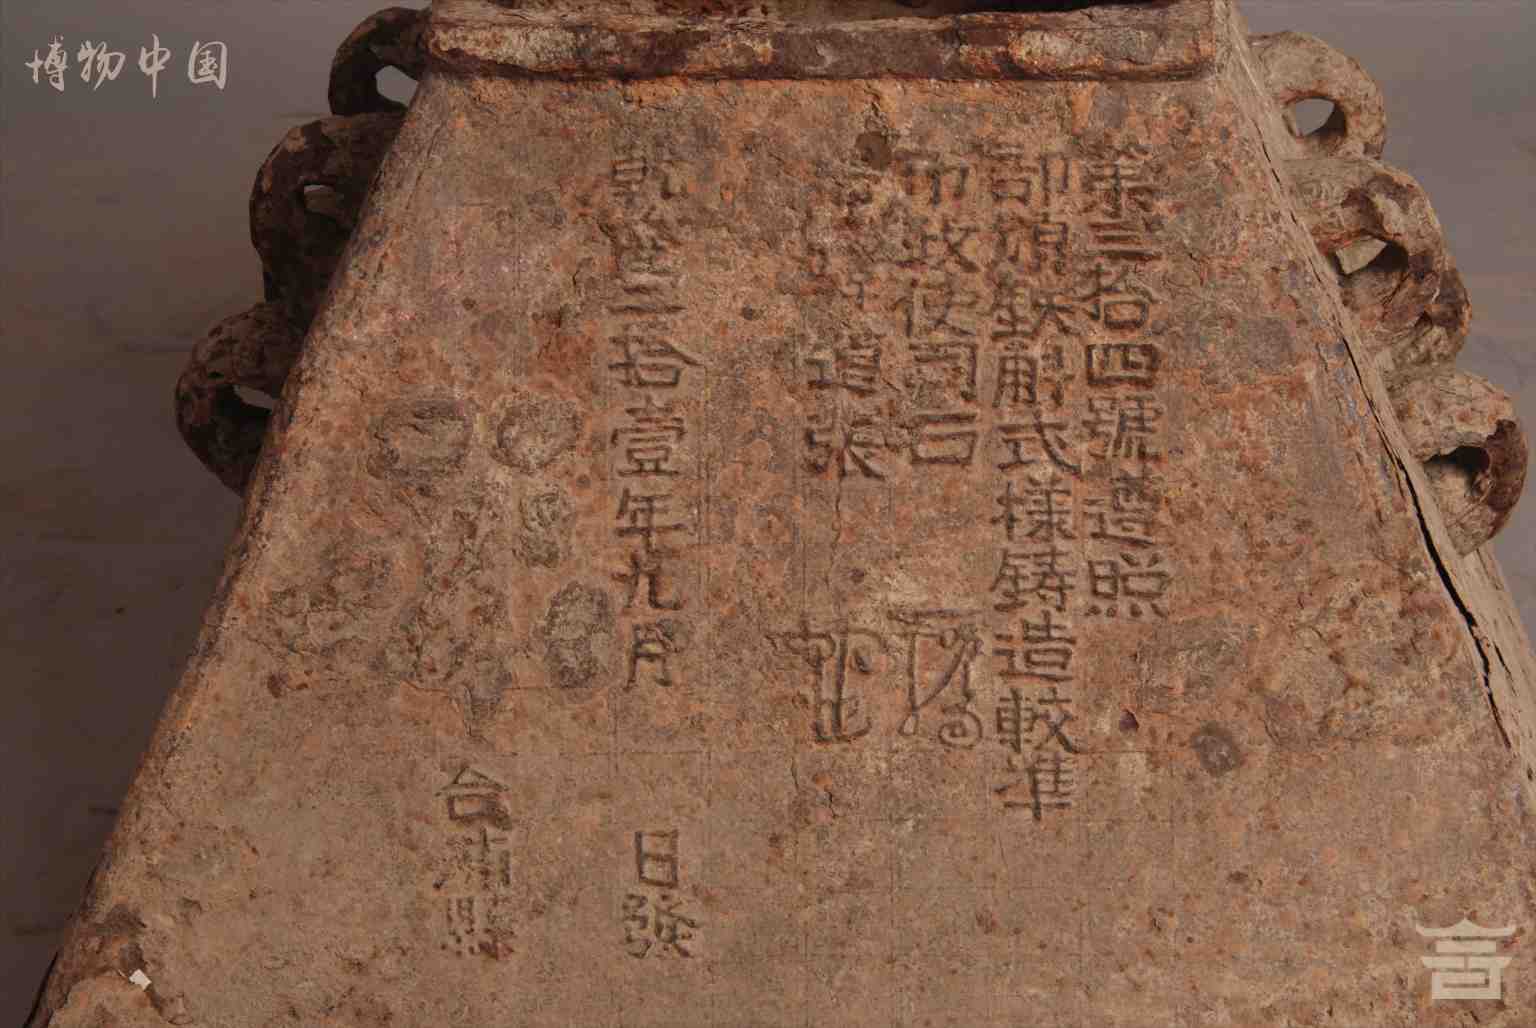 第三拾四號遵照
部頒鉄斛式様铸造較準
布政使司石
糧道張
乾隆三拾壹年九月 日發
合浦縣
博物中国